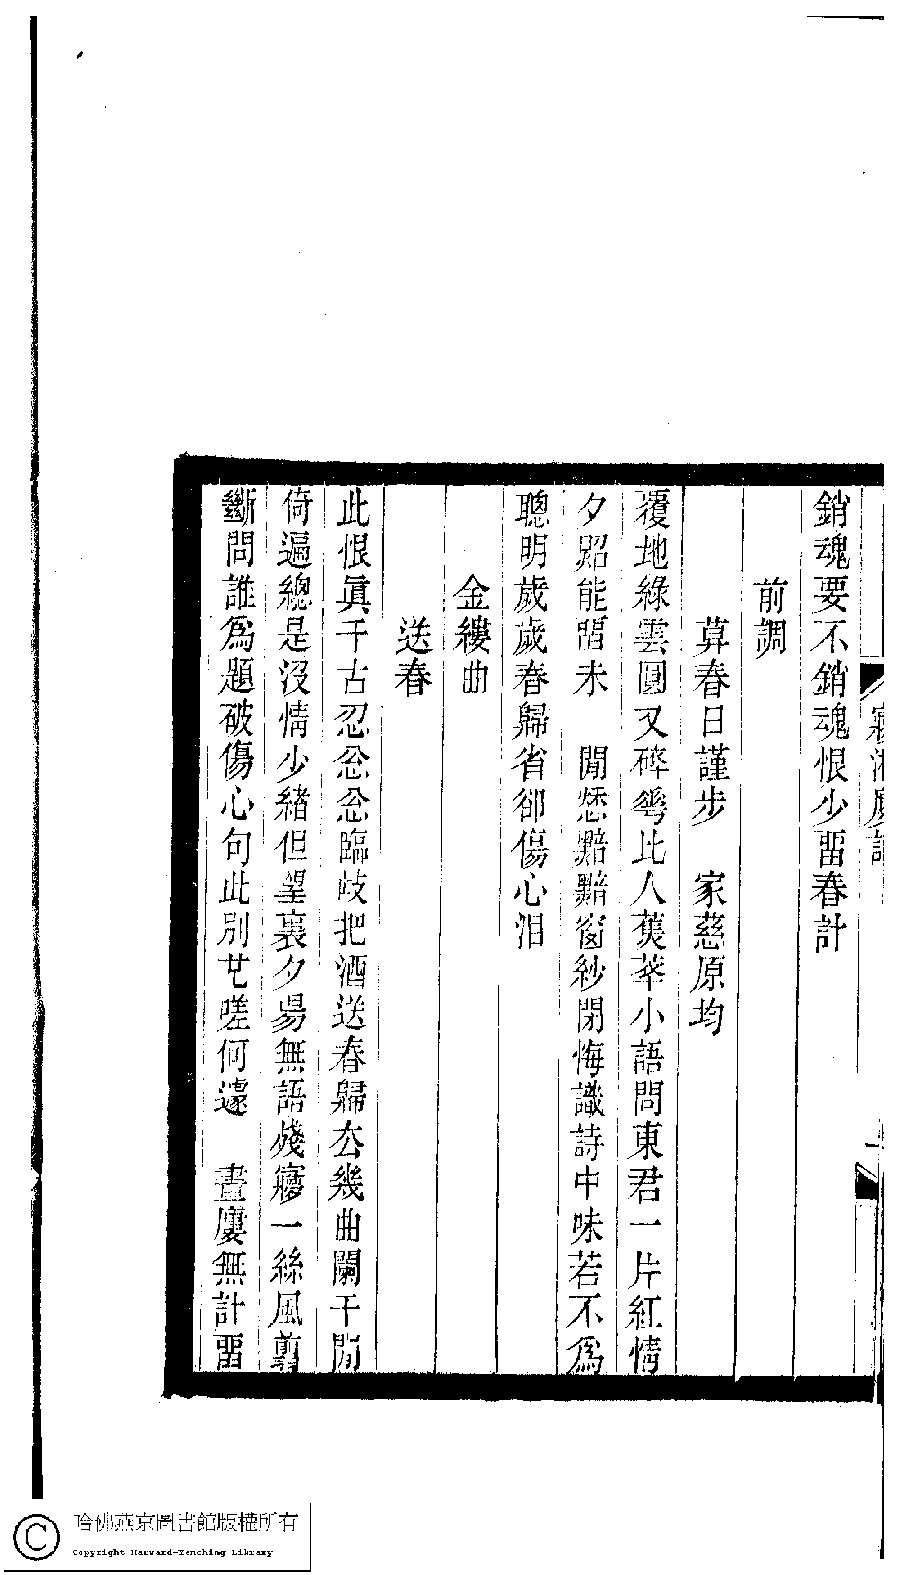 銷魂要不銷魂恨少畱春計
前調
莫春日謹步　家慈原均
覆地綠雲圓又碎㝿比人蕉萃小語問東君一片紅情
夕照能畱未　閒愁黯黯窗紗閉悔識詩中味若不爲
聰明歲歲春歸省卻傷心泪
金縷曲
送春
此恨眞千古忍忿忿臨歧把酒送春歸去幾曲闌干閒
倚遍總是沒情少緒但望裏夕陽無語殘夢一絲風翦
斷問誰爲題破傷心句此別也嗟何遽　畫廔無計畱
哈佛燕京圖書館版權所有
Copyright Harvard-Yenching Library